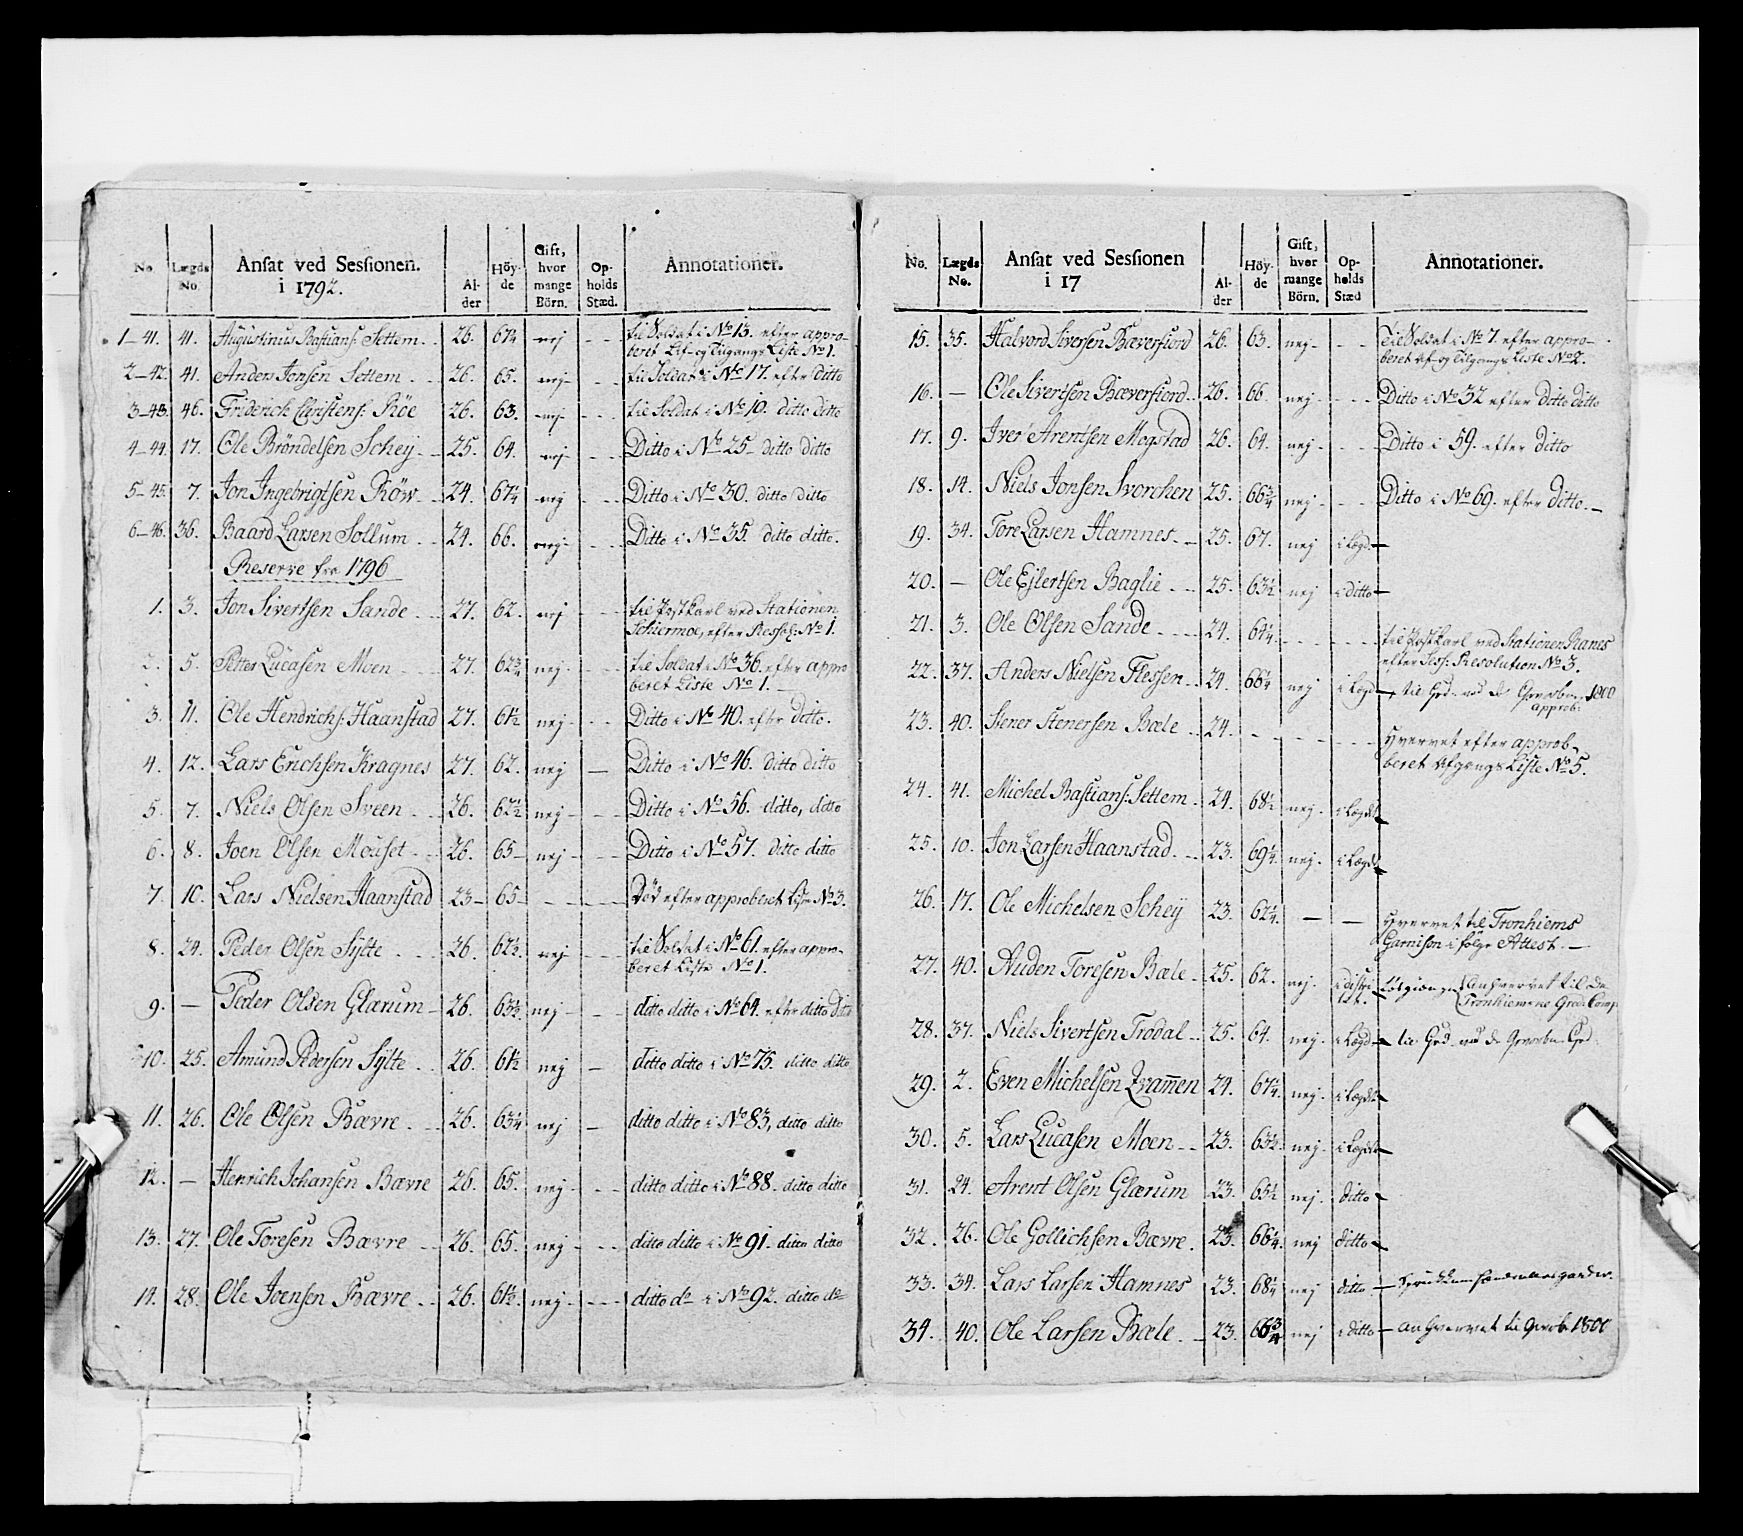 No. Lægds No. Ansat ved Sessionen. i 1792. Al-der Höy-de Gift, hvor mange Börn. Op-holds Stæd. Annotationer.
1-41. 41. Augustinus Bastians: Settem. 26. 67¼ nej - - til Soldat i No 13. efter appro-
beret Lif- og Tilgangs Liste No 1.
2-42. 41. Anders Jonsen Settem 26. 65. nej - - til Soldat i No 17. eftr ditto
3-43. 46. Friderich Christens: Röe 26. 63. nej - - til Soldat i No 19. ditto ditto
4-44. 17. Ole Bröndelsen Schey 25. 64. nej - - Ditto i No 25 - ditto ditto
5-45. 7. Jon Ingebrigtsen Röw 24. 67¼ nej - - Ditto i No 30. ditto ditto
6-46. 36. Baard Larsen Sollum 24. 66. nej - - Ditto i No 35. ditto ditto.
Reserve fra 1796
1. 3. Jon Sivertsen Sande 27. 62. nej - - til Postkarl ved Stationen
Schiermoe, efter Ressol: No 1.
2. 5. Petter Lucasen Moen 27. 62¾ nej - - til Soldat i No 36. efter appro
beret Liste No 1.
3. 11. Ole Hendrichs: Haanstad 27. 61½ nej - - Ditto i No 40. efter ditto.
4. 12. Lars Erichsen Kragnes 27. 62. nej — Ditto i No 46. ditto ditto
5. 7. Niels Olsen Sveen 26. 62½ nej - - Ditto i No 56. ditto, ditto
6. 8. Joen Olsen Mouset 26. 65 - nej - - Ditto i No 57. ditto ditto
7. 10. Lars Nielsen Haanstad 23 - 65 - - - Död efter approberet Liste No 3.
8. 24. Peder Olsen Sylte 26. 62½ nej - - til Soldat i No 61. efter appro-
beret Liste No 1.
9. — Peder Olsen Glærum 26. 63½ nej - - ditto ditto i No 64. efter ditto ditto
10. 25. Amund Pedersen Sylte 26. 61½ nej — ditto ditto i No 75. ditto ditto
11. 26. Ole Olsen Bævre 26. 63¼ nej — ditto ditto i No 83, ditto ditto
12. — Henrich Johansen Bævre 26. 65. nej - - ditto ditto i No 88. ditto ditto
13. 27. Ole Toresen Bævre 26. 65. nej - - ditto ditto i No 91. ditto ditto
14. 28. Ole Joensen Bævre 26. 61½ nej - - ditto do i No 92. ditto do
No. Lægds No. Ansat ved Sessionen i 17 Al-der Höy-de Gift, hvor mange Börn. Op-holds Stæd Annotationer.
15. 35. Halvord Siversen Bæverfiord 26. 63. nej - - til Soldat i No 7. efter appro-
beret Af- og Tilgangs Liste No 2.
16. — Ole Sivertsen Bæverfiord 26. 66. nej - - Ditto i No 32 efter ditto ditto
17. 9. Iver Arentsen Mogstad 26. 64. nej - - Ditto i 59. efter ditto
18. 14. Niels Jonsen Svorchen 25. 66¾ nej - - Ditto i No 69. efter ditto.
19. 34. Tore Larsen Hamnes 25. 67. nej i Lægd.
20. — Ole Ejlertsen Baglie 25. 63½ nej i ditto
21. 3. Ole Olsen Sande 24. 64¼ - - til Postkarl ved Stationen Ranes
efter Sess: Resolution No 3.
22. 37. Anders Nielsen Flessen 24. 66¼ nej i Lægd til Grd. ved 1800
approb:
23. 40. Stener Stenersen Bæle 24. - - Hvervet efter approb-
beret Afgangs Liste No 5.
24. 41. Michel Bastians: Settem 24. 68½ nej. i Lægdet
25. 10. Jon Larsen Haanstad 23. 69¼ nej. i Lægdet
26. 17. Ole Michelsen Schey 23. 62¼. — — Hvervet til Tronhiems
Garnison i fölge Attest. —
27. 40. Auden Toresen Bæle 25. 62. nej. i distri-
ctet. Anhvervet til de
Tronhiemske Gred: Comp
28. 37. Niels Sivertsen Trodal 25. 64. nej. i Lægd - til Grd. ved
29. 2. Even Michelsen Qvammen 24. 67¼. nej. i Lægdet
30. 5. Lars Lucasen Moen 23. 63½. nej. i Lægdet
31. 24. Arent Olsen Glærum 23. 65½ nej. ditto
32. 26. Ole Gollichsen Bævre. 23. 66¼. nej ditto
33. 34. Lars Larsen Hamnes 23. 68¼ nej ditto
34. 40. Ole Larsen Bæle 23. 66¾ nej i ditto - anhvervet til 1800